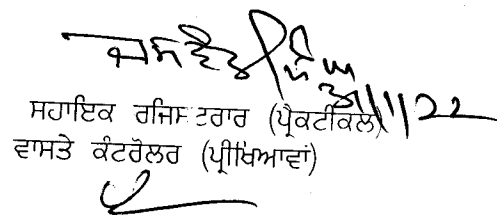 ਜਸਵੰਤ ਸਿੰਘ
11/1/22
ਸਹਾਇਕ ਰਜਿਸਟਰਾਰ (ਪ੍ਰੈਕਟੀਕਲ)
ਵਾਸਤੇ ਕੰਟਰੋਲਰ (ਪ੍ਰੀਖਿਆਵਾਂ)